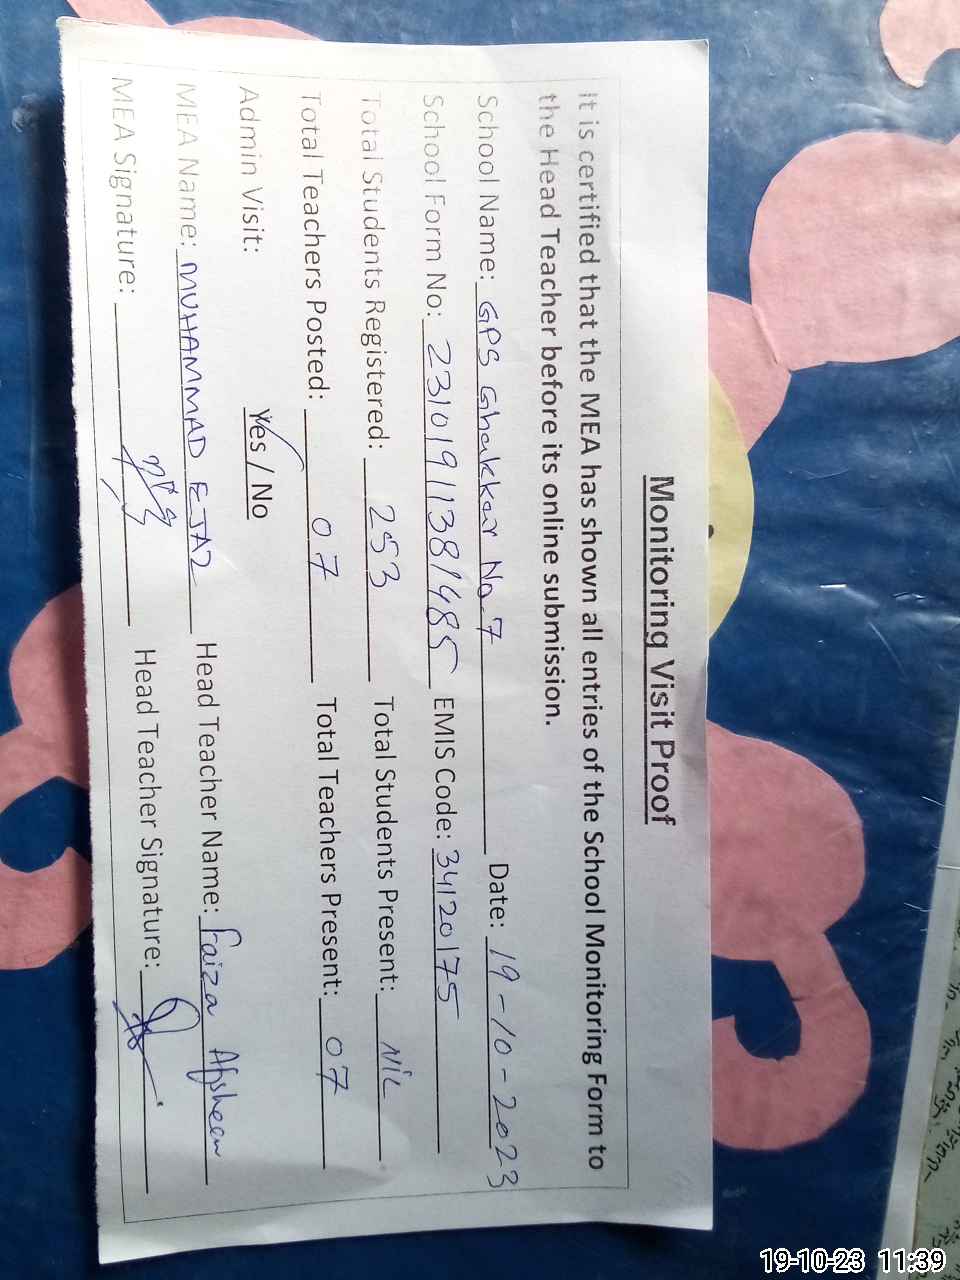 Monitoring Visit Proof
It is certified that the MEA has shown all entries of the School Monitoring Form to
the Head Teacher before its online submission.
School Name: GPS Ghakkar No.7 Date: 19-10-2023
School Form No: 23101911381485 EMIS Code: 34120175
Total Students Registered: 253 Total Students Present: NIL
Total Teachers Posted: 07 Total Teachers Present: 07
Admin Visit: Yes / No
MEA Name: MUHAMMAD EJAZ Head Teacher Name: Faiza Afsheen
MEA Signature: Head Teacher Signature:
19-10-23 11:39